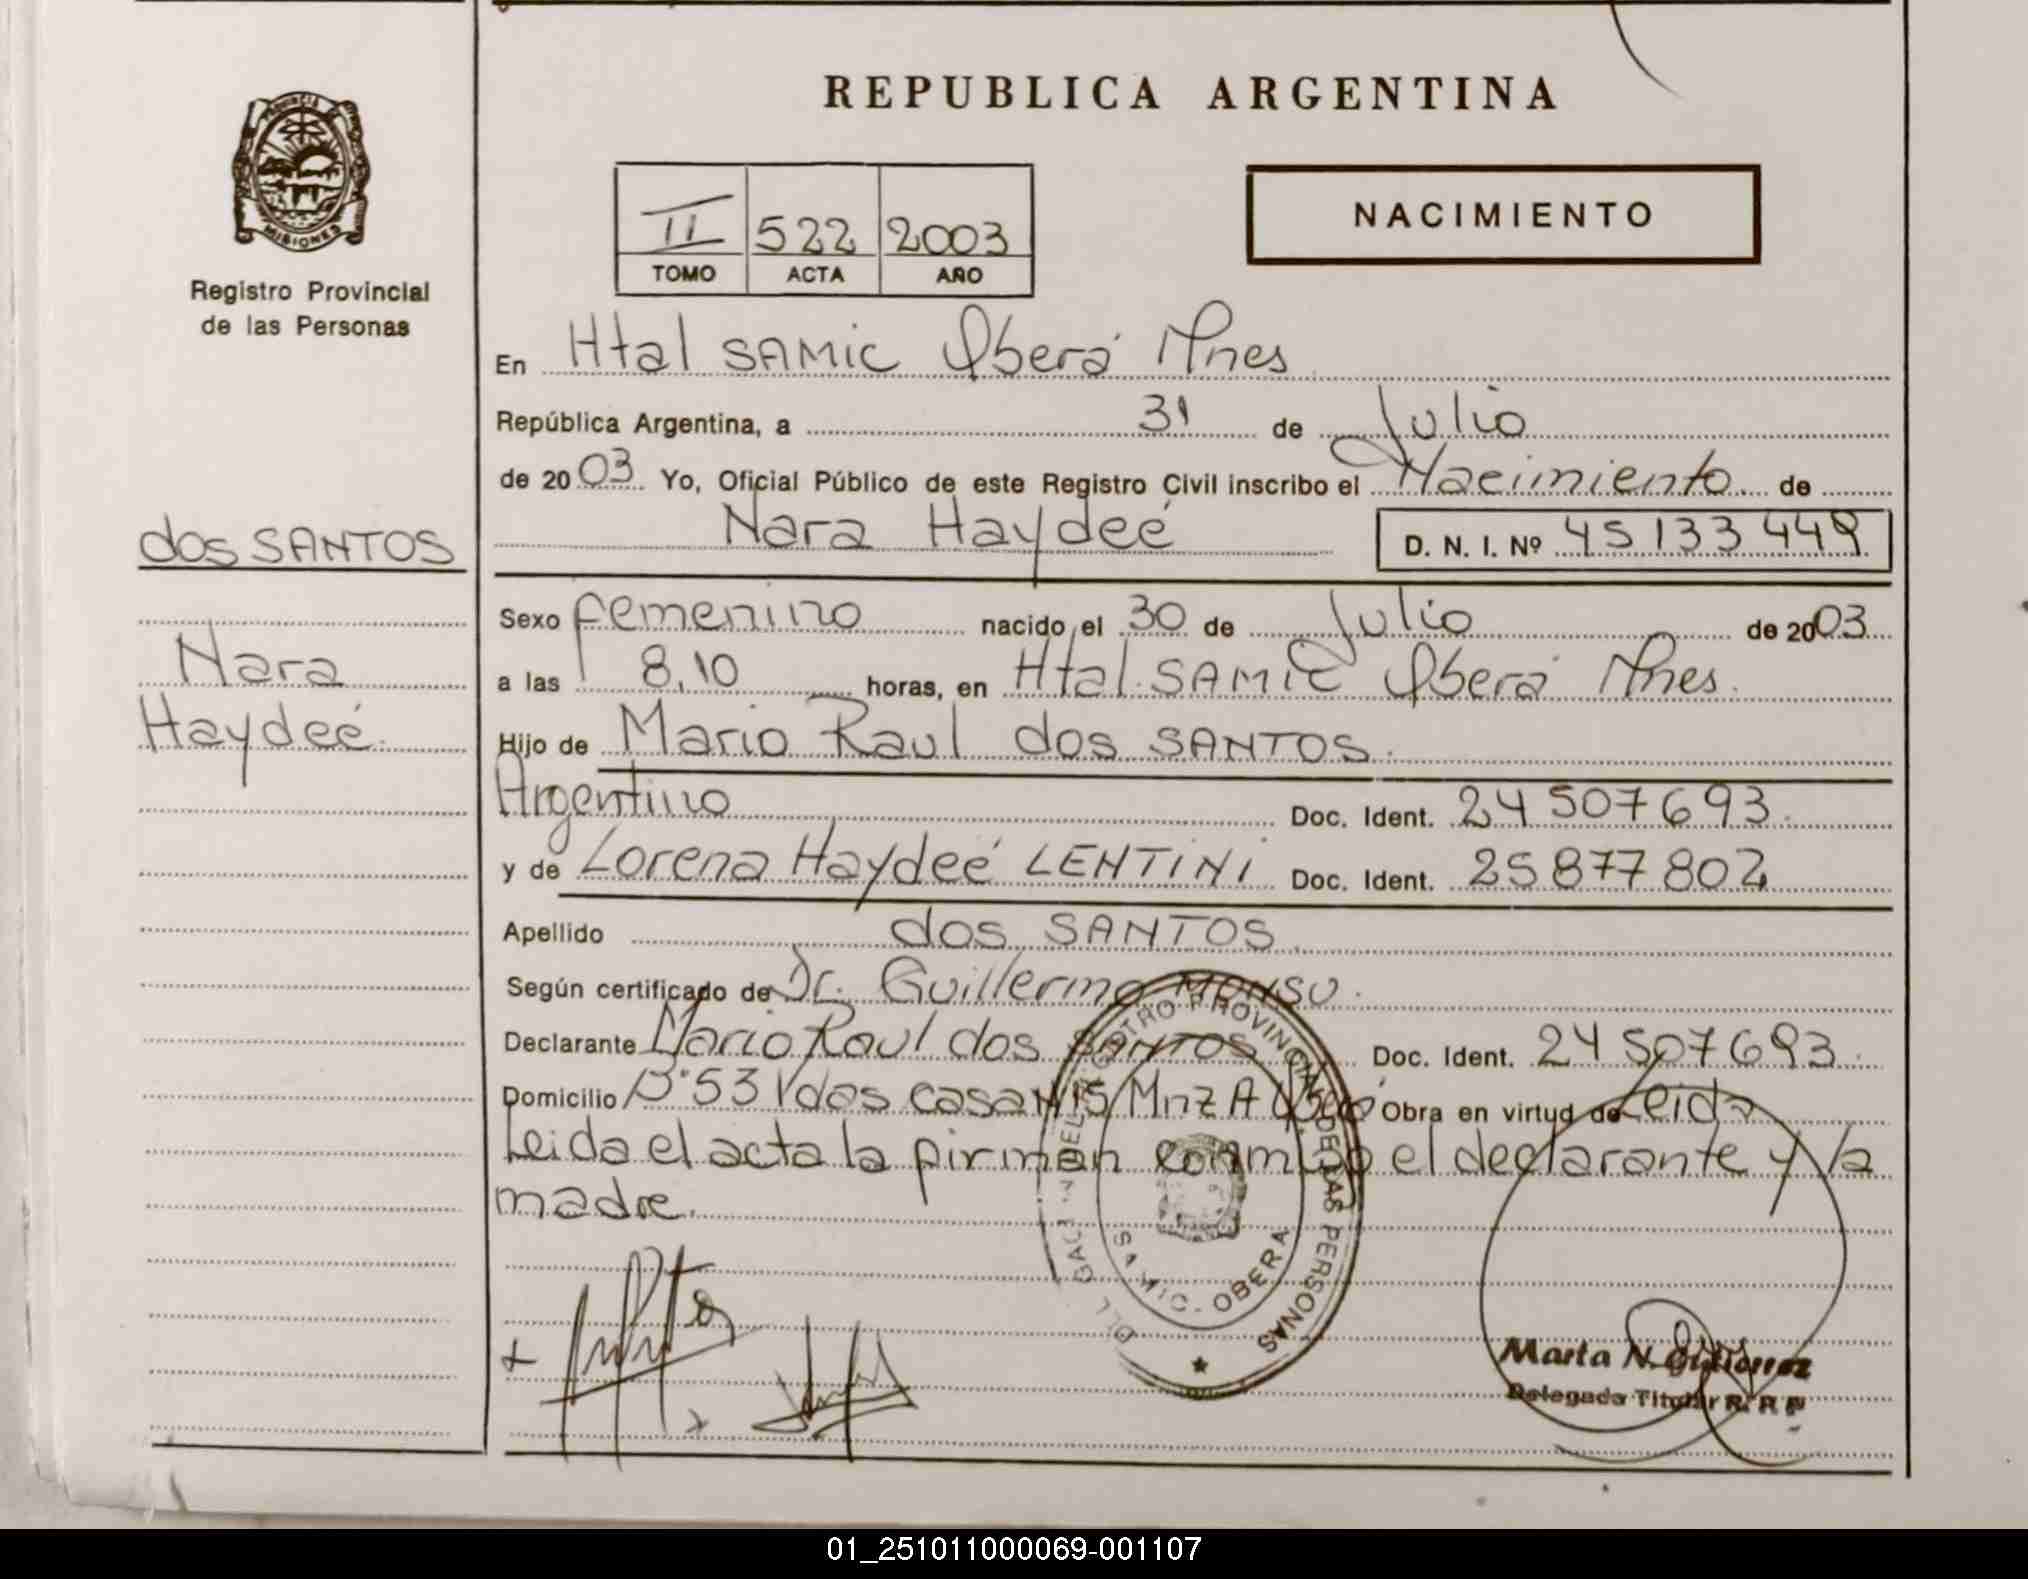 REPUBLICA ARGENTINA
PROVINCIA
MISIONES
Registro Provincial
de las Personas
II 522 2003
TOMO ACTA AÑO
NACIMIENTO
En Htal SAMIC Oberá Mnes
República Argentina, a 31 de Julio
de 2003 Yo, Oficial Público de este Registro Civil inscribo el Nacimiento de
Nara Haydeé D. N. I. Nº 45133449
dos SANTOS
Nara
Haydeé.
Sexo femenino nacido el 30 de Julio de 2003
a las 8,10 horas, en Htal. SAMIC Oberá Mnes.
Hijo de Mario Raul dos SANTOS.
Argentino Doc. Ident. 24507693.
y de Lorena Haydeé LENTINI Doc. Ident. 25877802
Apellido dos SANTOS.
Según certificado de Dr. Guillermo Monsu.
Declarante Mario Raul dos SANTOS Doc. Ident. 24507693.
Domicilio Bº 53 Vdos casa Nº 5 Mnz A Oberá Obra en virtud de Leida
Leida el acta la firman conmigo el declarante y la
madre.
REGISTRO PROVINCIAL DE LAS PERSONAS
SAMIC. OBERA
Marta N. Gutierrez
Delegada Titular R. P. P
01_251011000069-001107